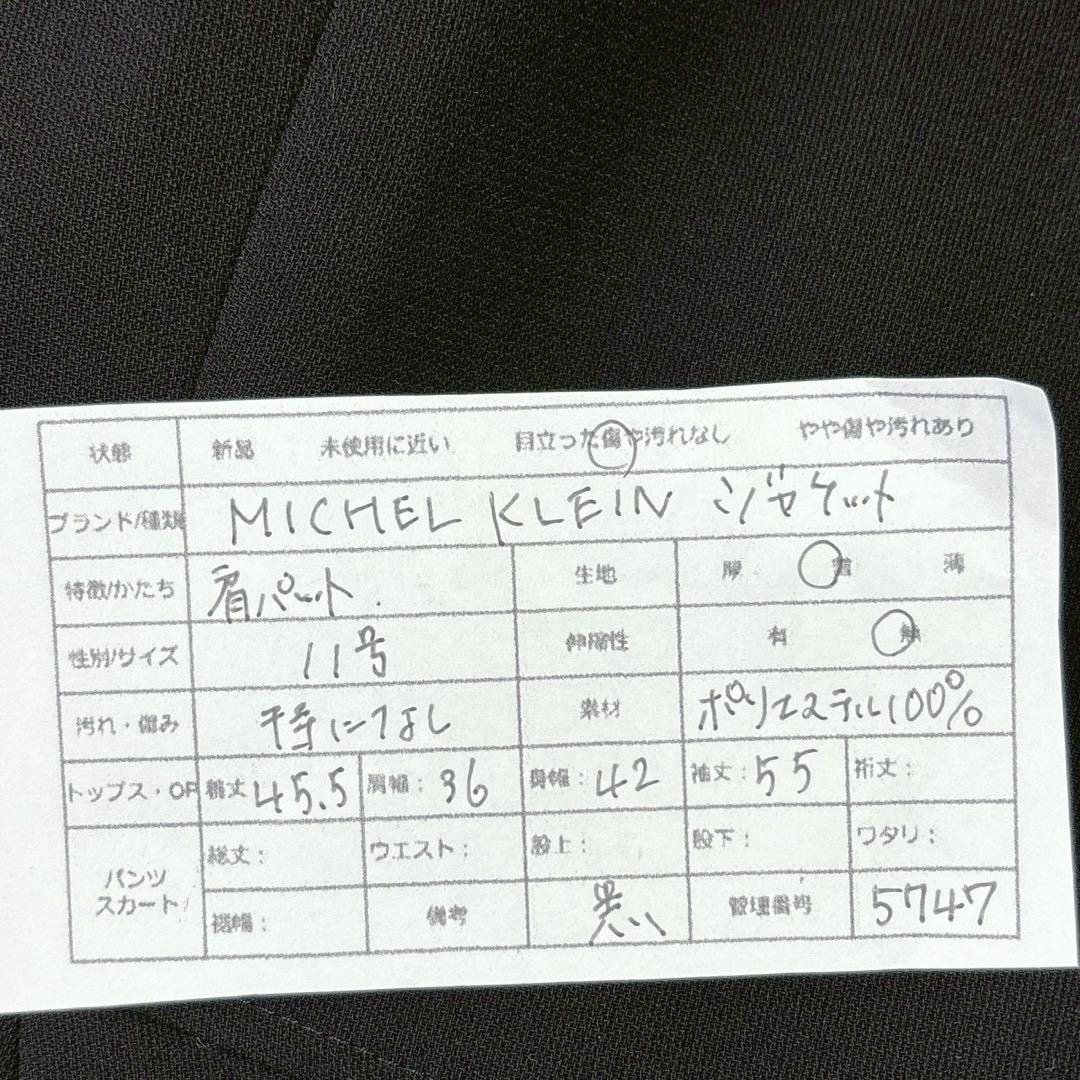 状態 新品 未使用に近い 目立った傷や汚れなし やや傷や汚れあり
ブランド/種類 MICHEL KLEIN ジャケット
特徴/かたち 肩パット 生地 厚 普 薄
性別/サイズ 11号 伸縮性 有 無
汚れ・傷み 特になし 素材 ポリエステル100%
トップス・OP 着丈 45.5 肩幅: 36 身幅: 42 袖丈: 55 裄丈:
パンツ スカート 総丈: ウエスト: 股上: 股下: ワタリ:
裾幅: 備考 黒い 管理番号 5747